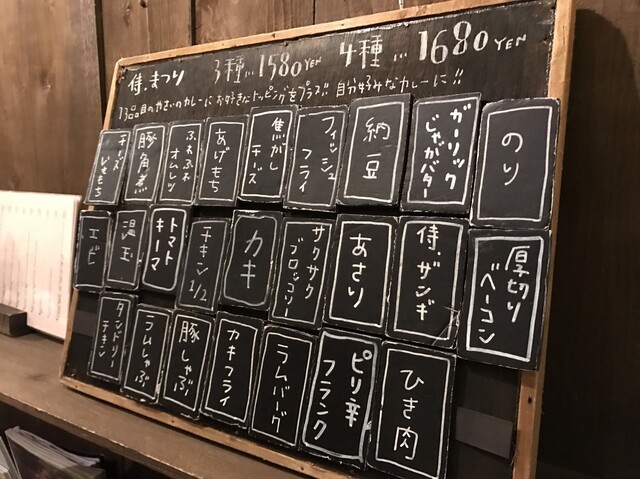 侍.まつり 3種…1580YEN 4種…1680YEN
13品目のやさいのカレーにお好きなトッピングをプラス!! 自分好みなカレーに!!
チーズいももち
豚角煮
ふわふわオムレツ
あげもち
焦がしチーズ
フィッシュフライ
納豆
ガーリックじゃがバター
のり
エビ
温玉
トマトキーマ
チキン1/2
カキ
サクサクブロッコリー
あさり
侍.ザンギ
厚切りベーコン
タンドリーチキン
ラムしゃぶ
豚しゃぶ
カキフライ
ラムバーグ
ピリ辛フランク
ひき肉